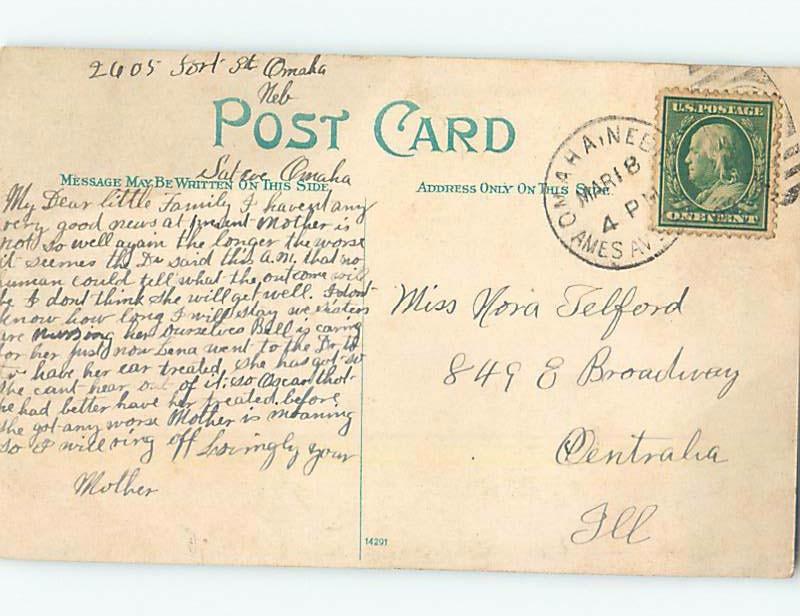 2605 Fort St Omaha
Neb
POST CARD
Sat eve Omaha
MESSAGE MAY BE WRITTEN ON THIS SIDE
ADDRESS ONLY ON THIS SIDE
My Dear little Family I havent any
very good news at present Mother is
not so well again the longer the worse
it seems the Dr said this A.M. that no
human could tell what the outcome will
be I dont think she will get well. I dont
know how long I will stay we sisters
are nursing her ourselves Bell is caring
for her just now Lena went to the Dr. to
have her ear treated, she has got so
she cant hear out of it; so Oscar thot
he had better have her treated before
she got any worse Mother is moaning
so I will ring off Lovingly your
Mother
OMAHA, NEB.
MAR 18
4 PM
AMES AV
U.S. POSTAGE
ONE CENT
Miss Nora Telford
849 E Broadway
Centralia
Ill
14291